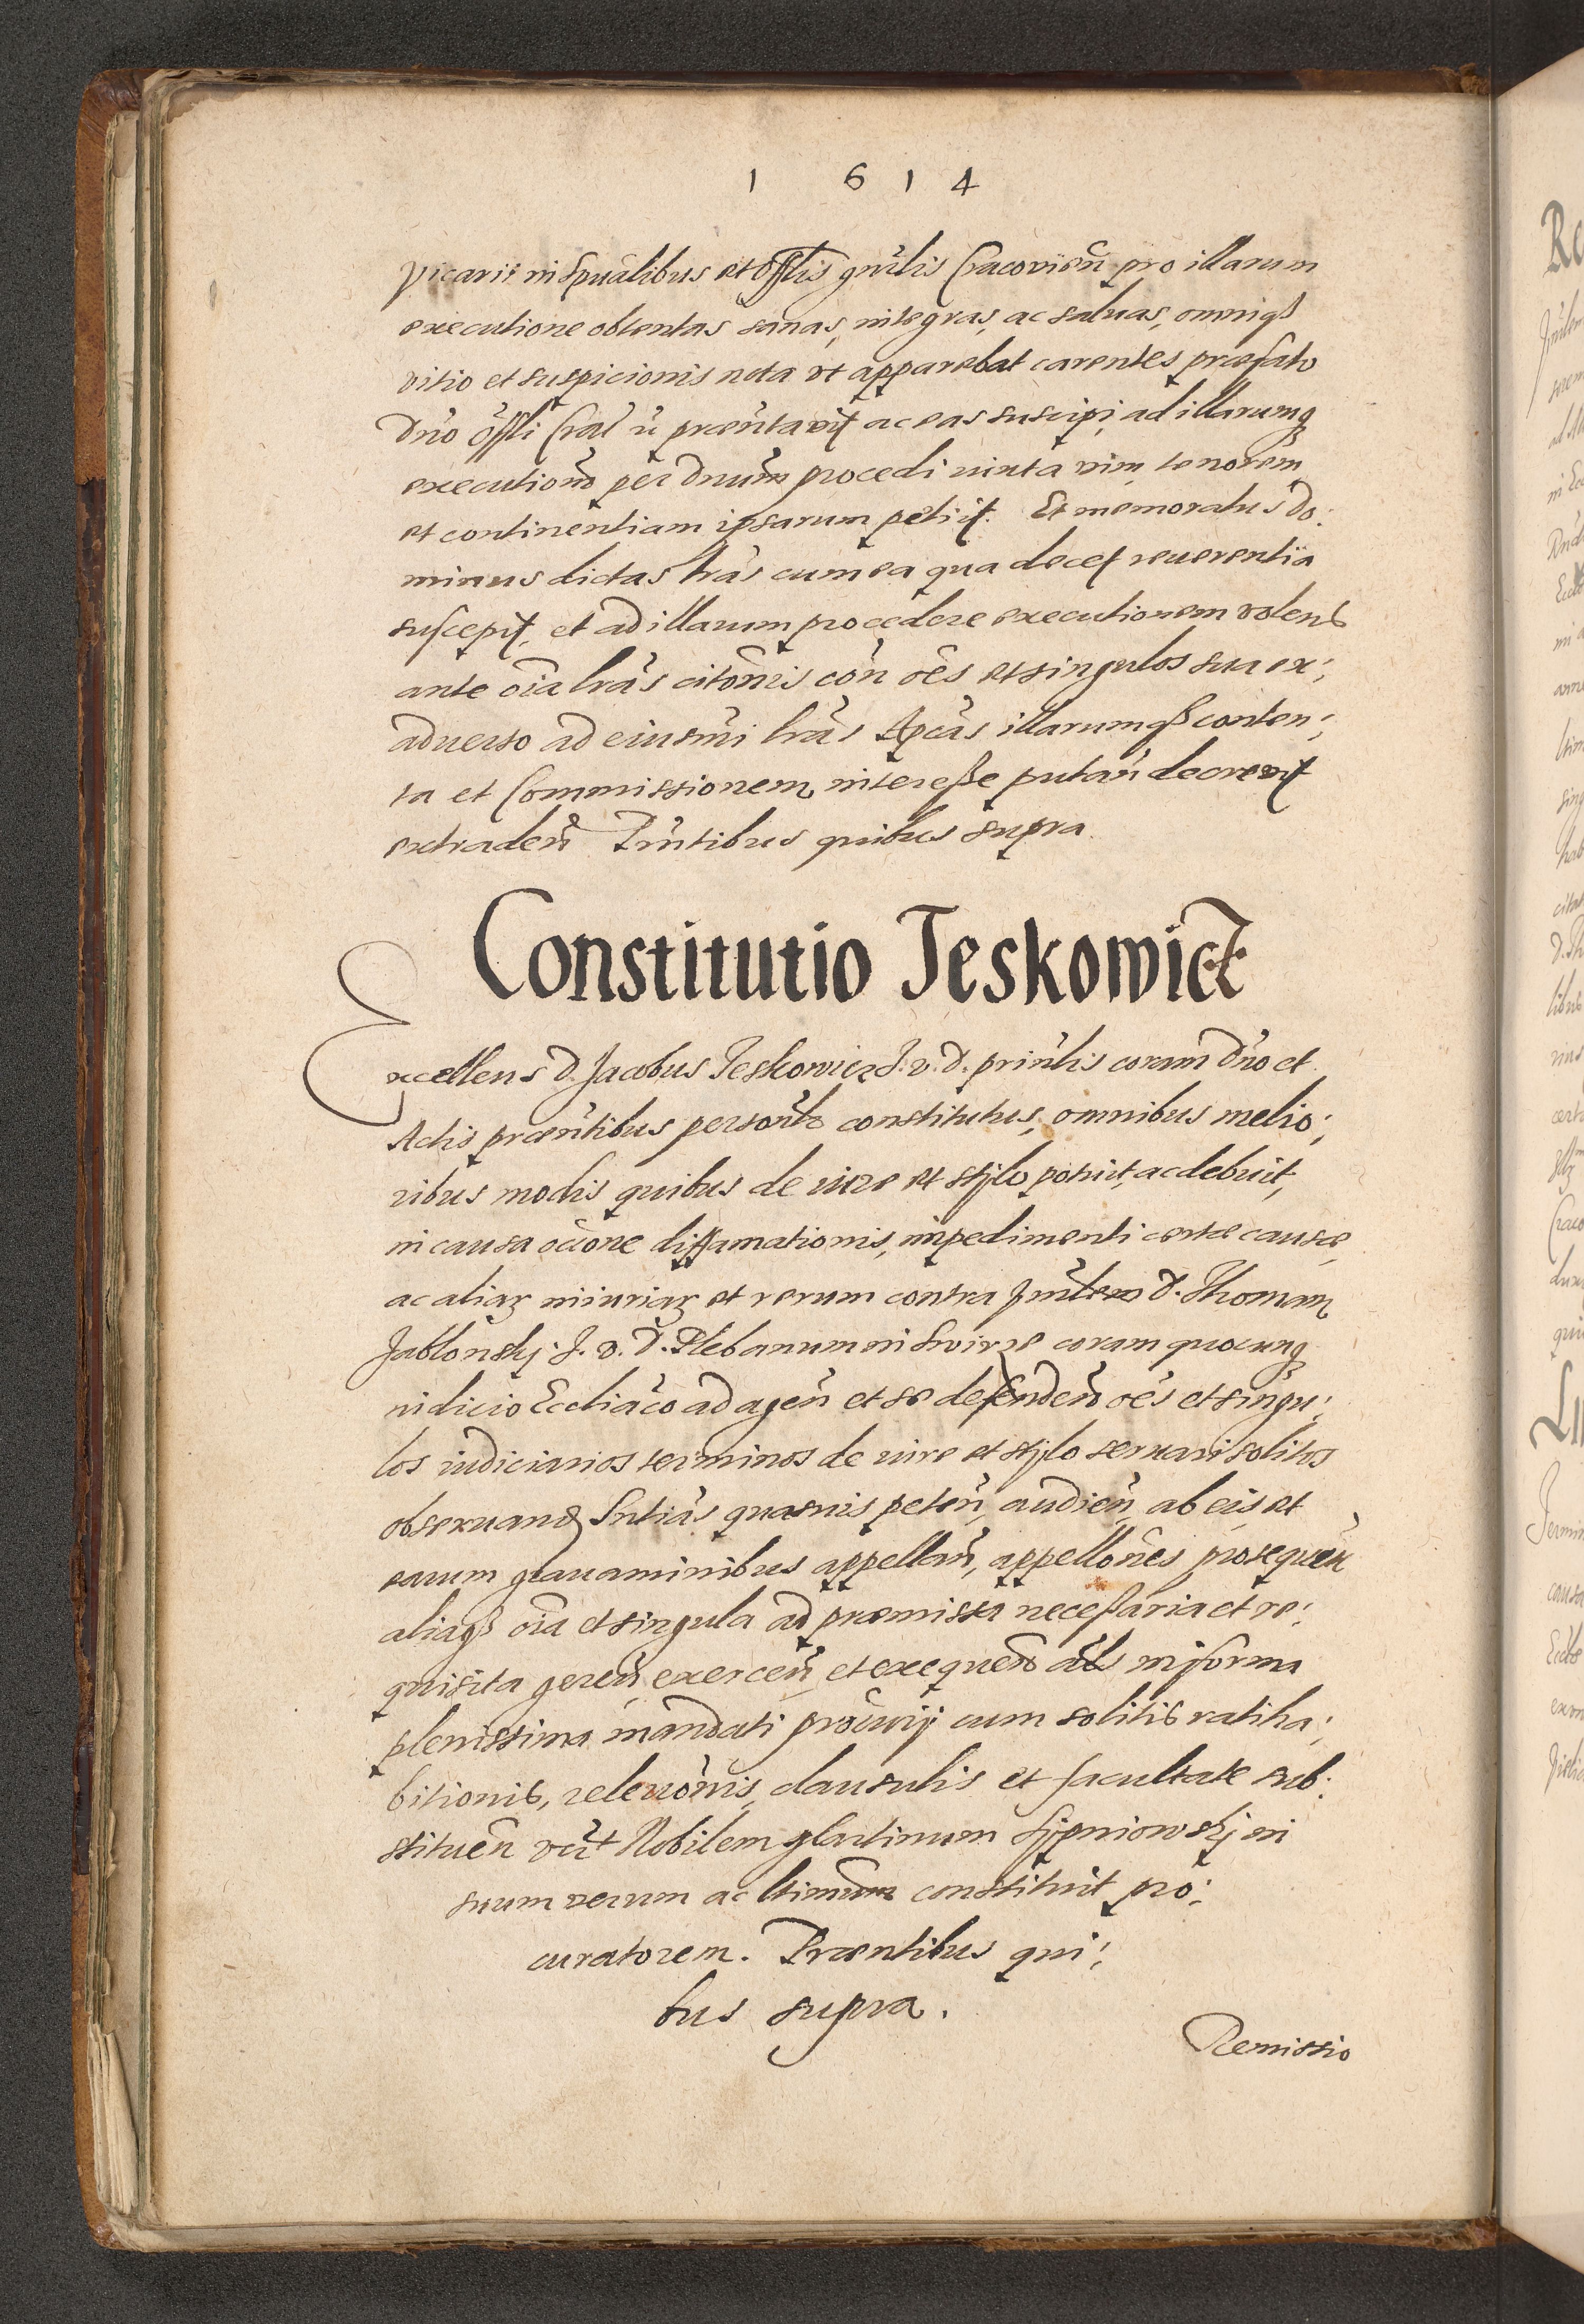 1 6 1 4
Vicarii in Spũalibus et Offlis gnrlis Cracovien̄ pro illarum
executione obtentas sanas, integras, ac saluas, omniqз
vitio et suspicionis nota vt apparebat carentes præfato
Dn̄o Offli præn̄tavit ac eas suscipi, ad illarumqз
executionē per Dnum procedi iuxta vim, tenorem
et continentiam ipsarum petiit. Et memoratus Do:
minus dictas lr̄as cum ea qua decet reuerentia
suscepit, et ad illarum procedere executionem volens
ante oīa lr̄as citōnis con̄ oēs et singulos sua ex:
aduerso ad eiusmōi lr̄as Apcas illarumqз conten:
ta et Commissionem interesse putan̄ decrevit
extraden̄ Pn̄tibus quibus supra
Constitutio Jeskowicz
Excellens D. Jacobus Jeskowicz J. v. D. prin̄lis coram Dn̄o et
Actis præn̄tibus personlr constitutus, omnibus melio:
ribus modis quibus de iure et stylo potuit, ac debuit,
in causa oc̄c̄one diffamationis, impedimenti certæ causæ
ac aliaꝝ iniuriaꝝ et rerum contra D. Thomam
Jablonsky J. v. D. Plebanum in coram quocunqз
iudicio Eccliac̄o ad agen̄ et se defenden̄ oēs et singu:
los iudiciarios terminos de iure et stylo seruari solitos
obseruand Sn̄tias quasuis peten̄, audien̄, ab eis et
earum grauaminibus appellan̄, appellōnes prosequen̄
aliaqз oīa et singula ad præmissa necessaria et re:
quisita geren̄ exercen̄ et exequen̄ als in forma
plenissima mandati procurij cum solitis ratiha:
bitionis, releuōnis, clausulis et facultate sub:
stituen̄ Nobilem Martinum Sijpniowskj in
suum verum ac ltimum constituit pro:
curatorem. Præntibus qui:
bus supra.
Remissio